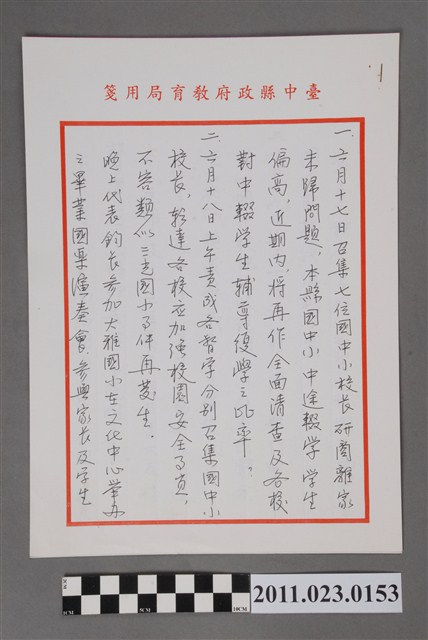 臺中縣政府教育局用箋
1
一、六月十七日召集七位國中小校長研商離家
未歸問題,本縣國中小中途輟學學生
偏高,近期內,將再作全面清查及各校
對中輟學生輔導復學之比率。
二、六月十八日上午責成各督學分別召集國中小
校長,轉達各校应加强校園安全事頁,
不容類似三光國小事件再發生。
晚上代表鈞長參加大雅國小在文化中心举办
之畢業國樂演奏會,參與家長及学生
0CM
5CM
10CM
2011.023.0153